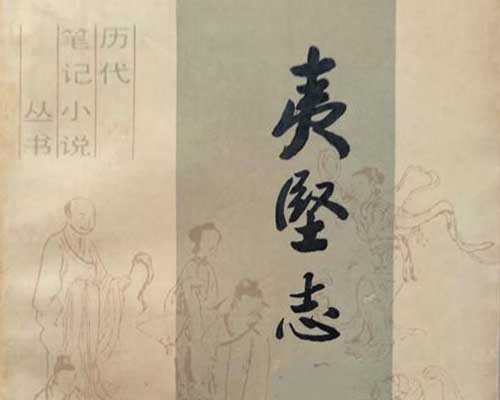 历代
笔记小说
丛书
夷坚志